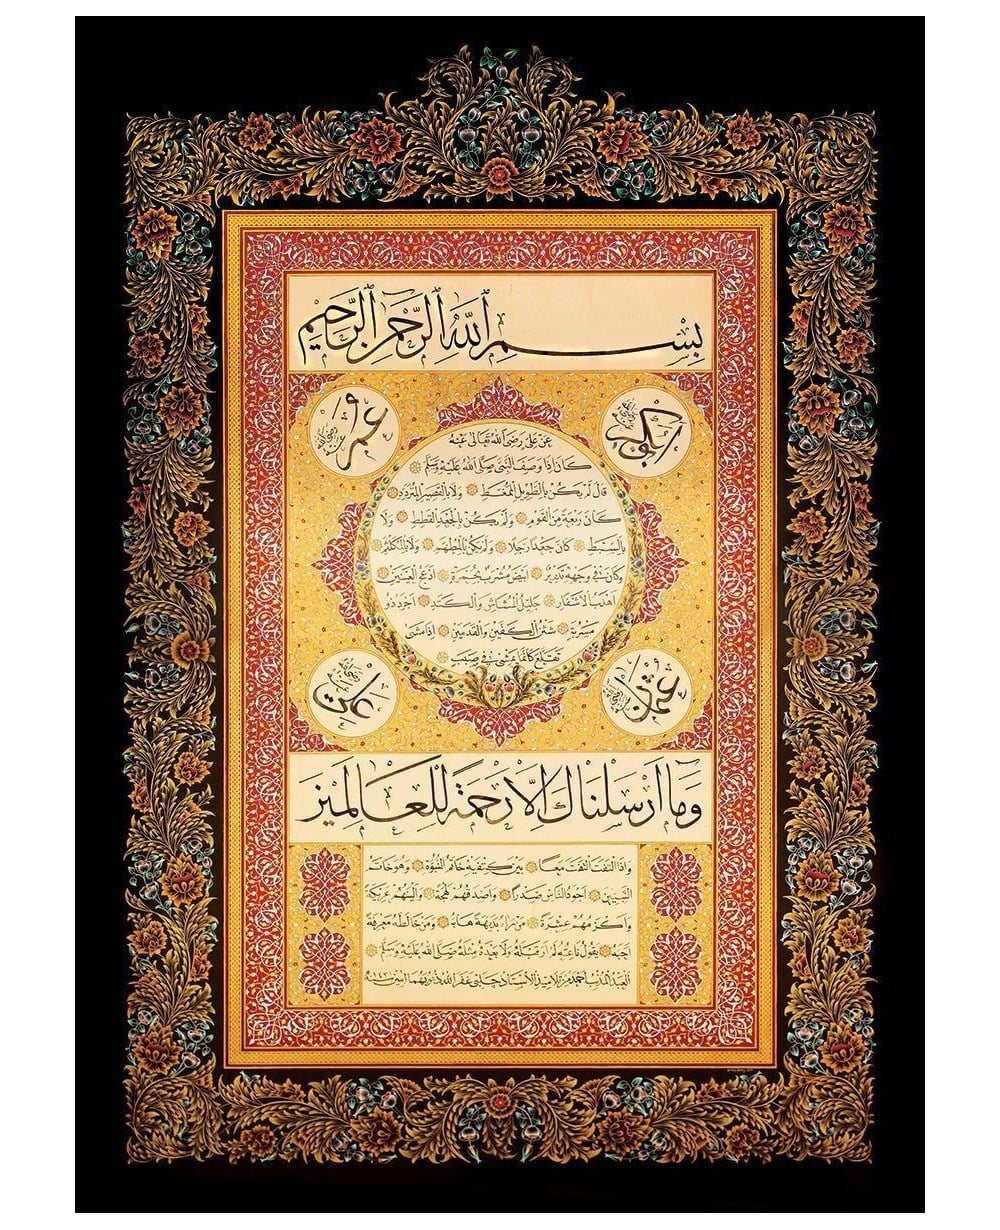 بِسْمِ ٱللَّهِ ٱلرَّحْمَٰنِ ٱلرَّحِيمِ
أبو بكر رضي الله عنه
عمر رضي الله عنه
عن علي رضي الله تعالى عنه
كان إذا وصف النبي صلى الله عليه وسلم
قال لم يكن بالطويل الممغط ولا بالقصير المتردد
كان ربعة من القوم ولم يكن بالجعد القطط ولا
بالسبط كان جعدا رجلا ولم يكن بالمطهم ولا بالمكلثم
وكان في وجهه تدوير ابيض مشرب بحمرة ادعج العينين
اهدب الاشفار جليل المشاش والكتد اجرد ذو
مسربة شثن الكفين والقدمين اذا مشى
تقلع كانما يمشي في صبب
عثمان رضي الله عنه
علي رضي الله عنه
وما أرسلناك إلا رحمة للعالمين
واذا التفت التفت معا بين كتفيه خاتم النبوة وهو خاتم
النبيين اجود الناس صدرا واصدقهم لهجة والينهم عريكة
واكرمهم عشرة من رآه بديهة هابه ومن خالطه معرفة
احبه يقول ناعته لم ار قبله ولا بعده مثله صلى الله عليه وسلم
العبد المذنب من تلاميذ الاستاذ چلبي غفر الله ذنوبهما امين